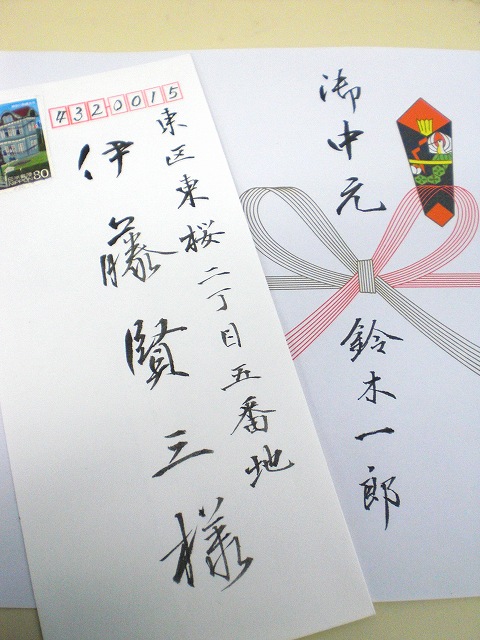 4320015
東区東桜二丁目五番地
伊藤賢三様
80
御中元
鈴木一郎